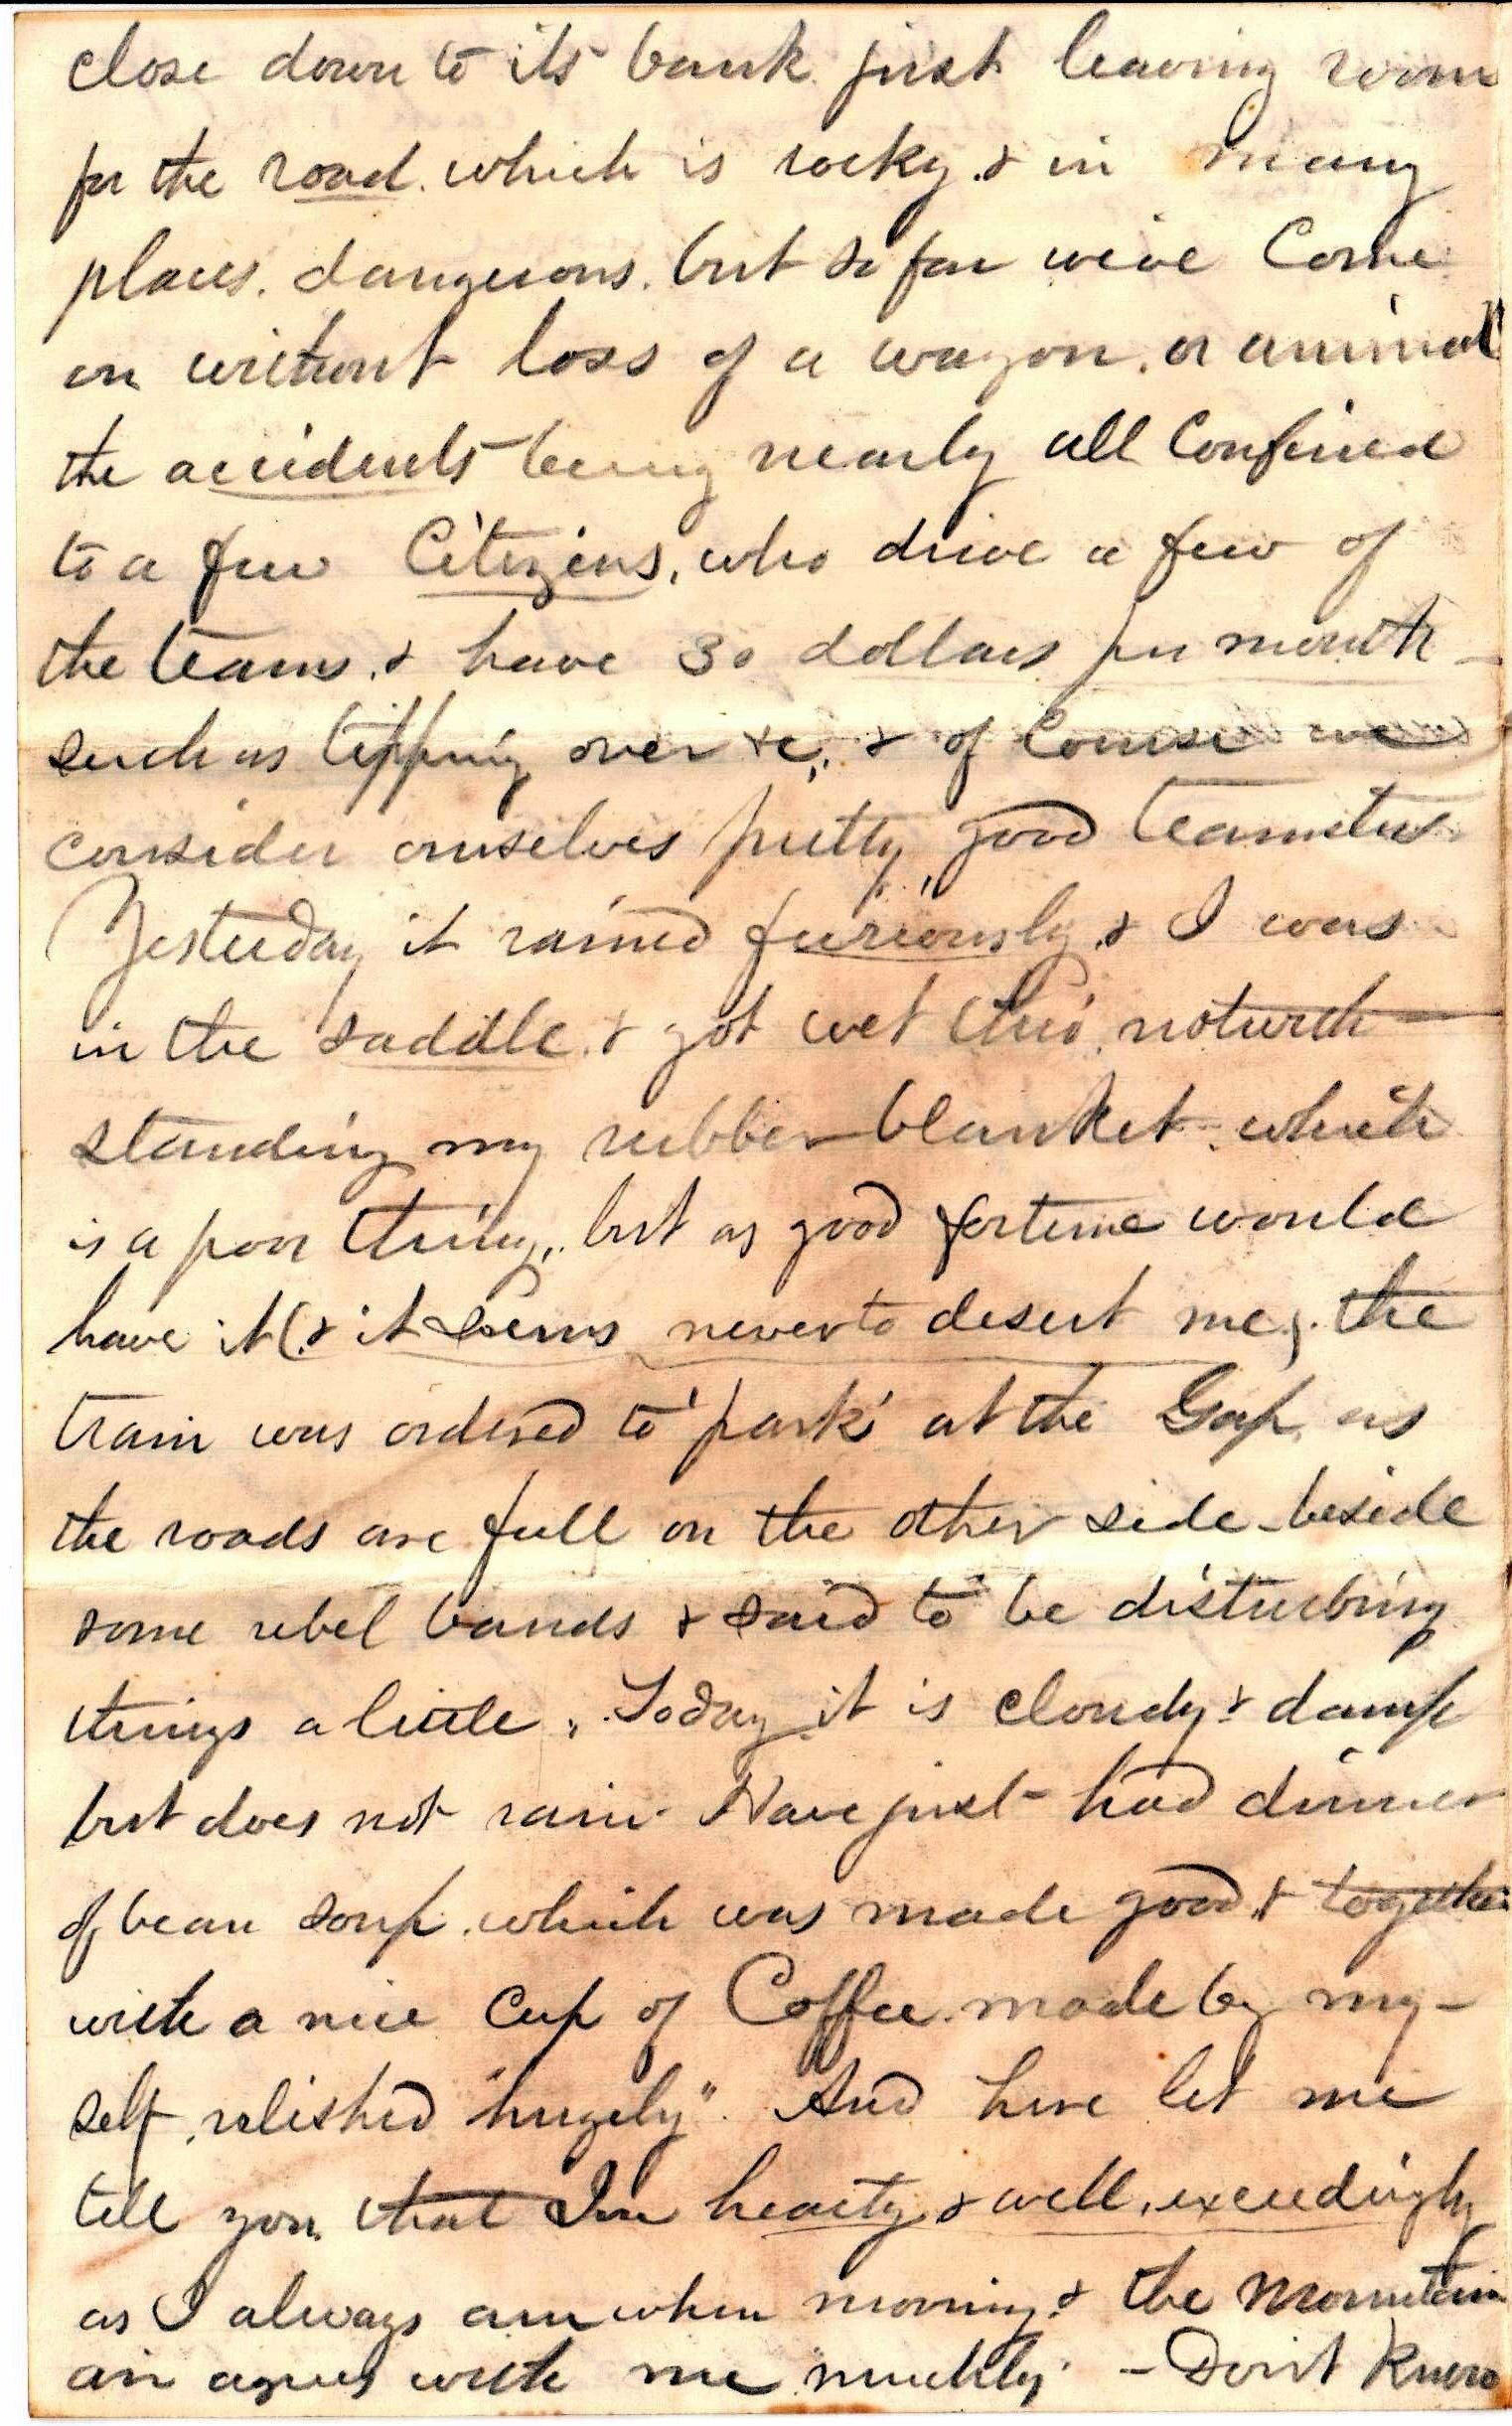 close down to its bank just leaving room
for the road. which is rocky. & in many
places. dangerous. but so far we've Come
on without loss of a wagon. or animal
the accidents being nearly all Confined
to a few Citizens, who drive a few of
the teams. & have 30 dollars per month -
such as tipping over &c,. & of Course we
consider ourselves pretty good teamsters
Yesterday it rained furiously. & I was
in the saddle. & got wet thro'. notwith-
standing my rubber blanket. which
is a poor thing,. but as good fortune would
have it (& it seems never to desert me). the
train was ordered to 'park' at the Gap, as
the roads are full on the other side - beside
some rebel bands & said to be disturbing
things a little. Today it is cloudy & damp
but does not rain. Have just had dinner
of bean soup. which was made good. & together
with a nice Cup of Coffee. made by my-
self, relished "hugely". And here let me
tell you. that I'm hearty & well. exceedingly
as I always am when moving. & the Mountain
air agrees with me muchly. - Don't Know